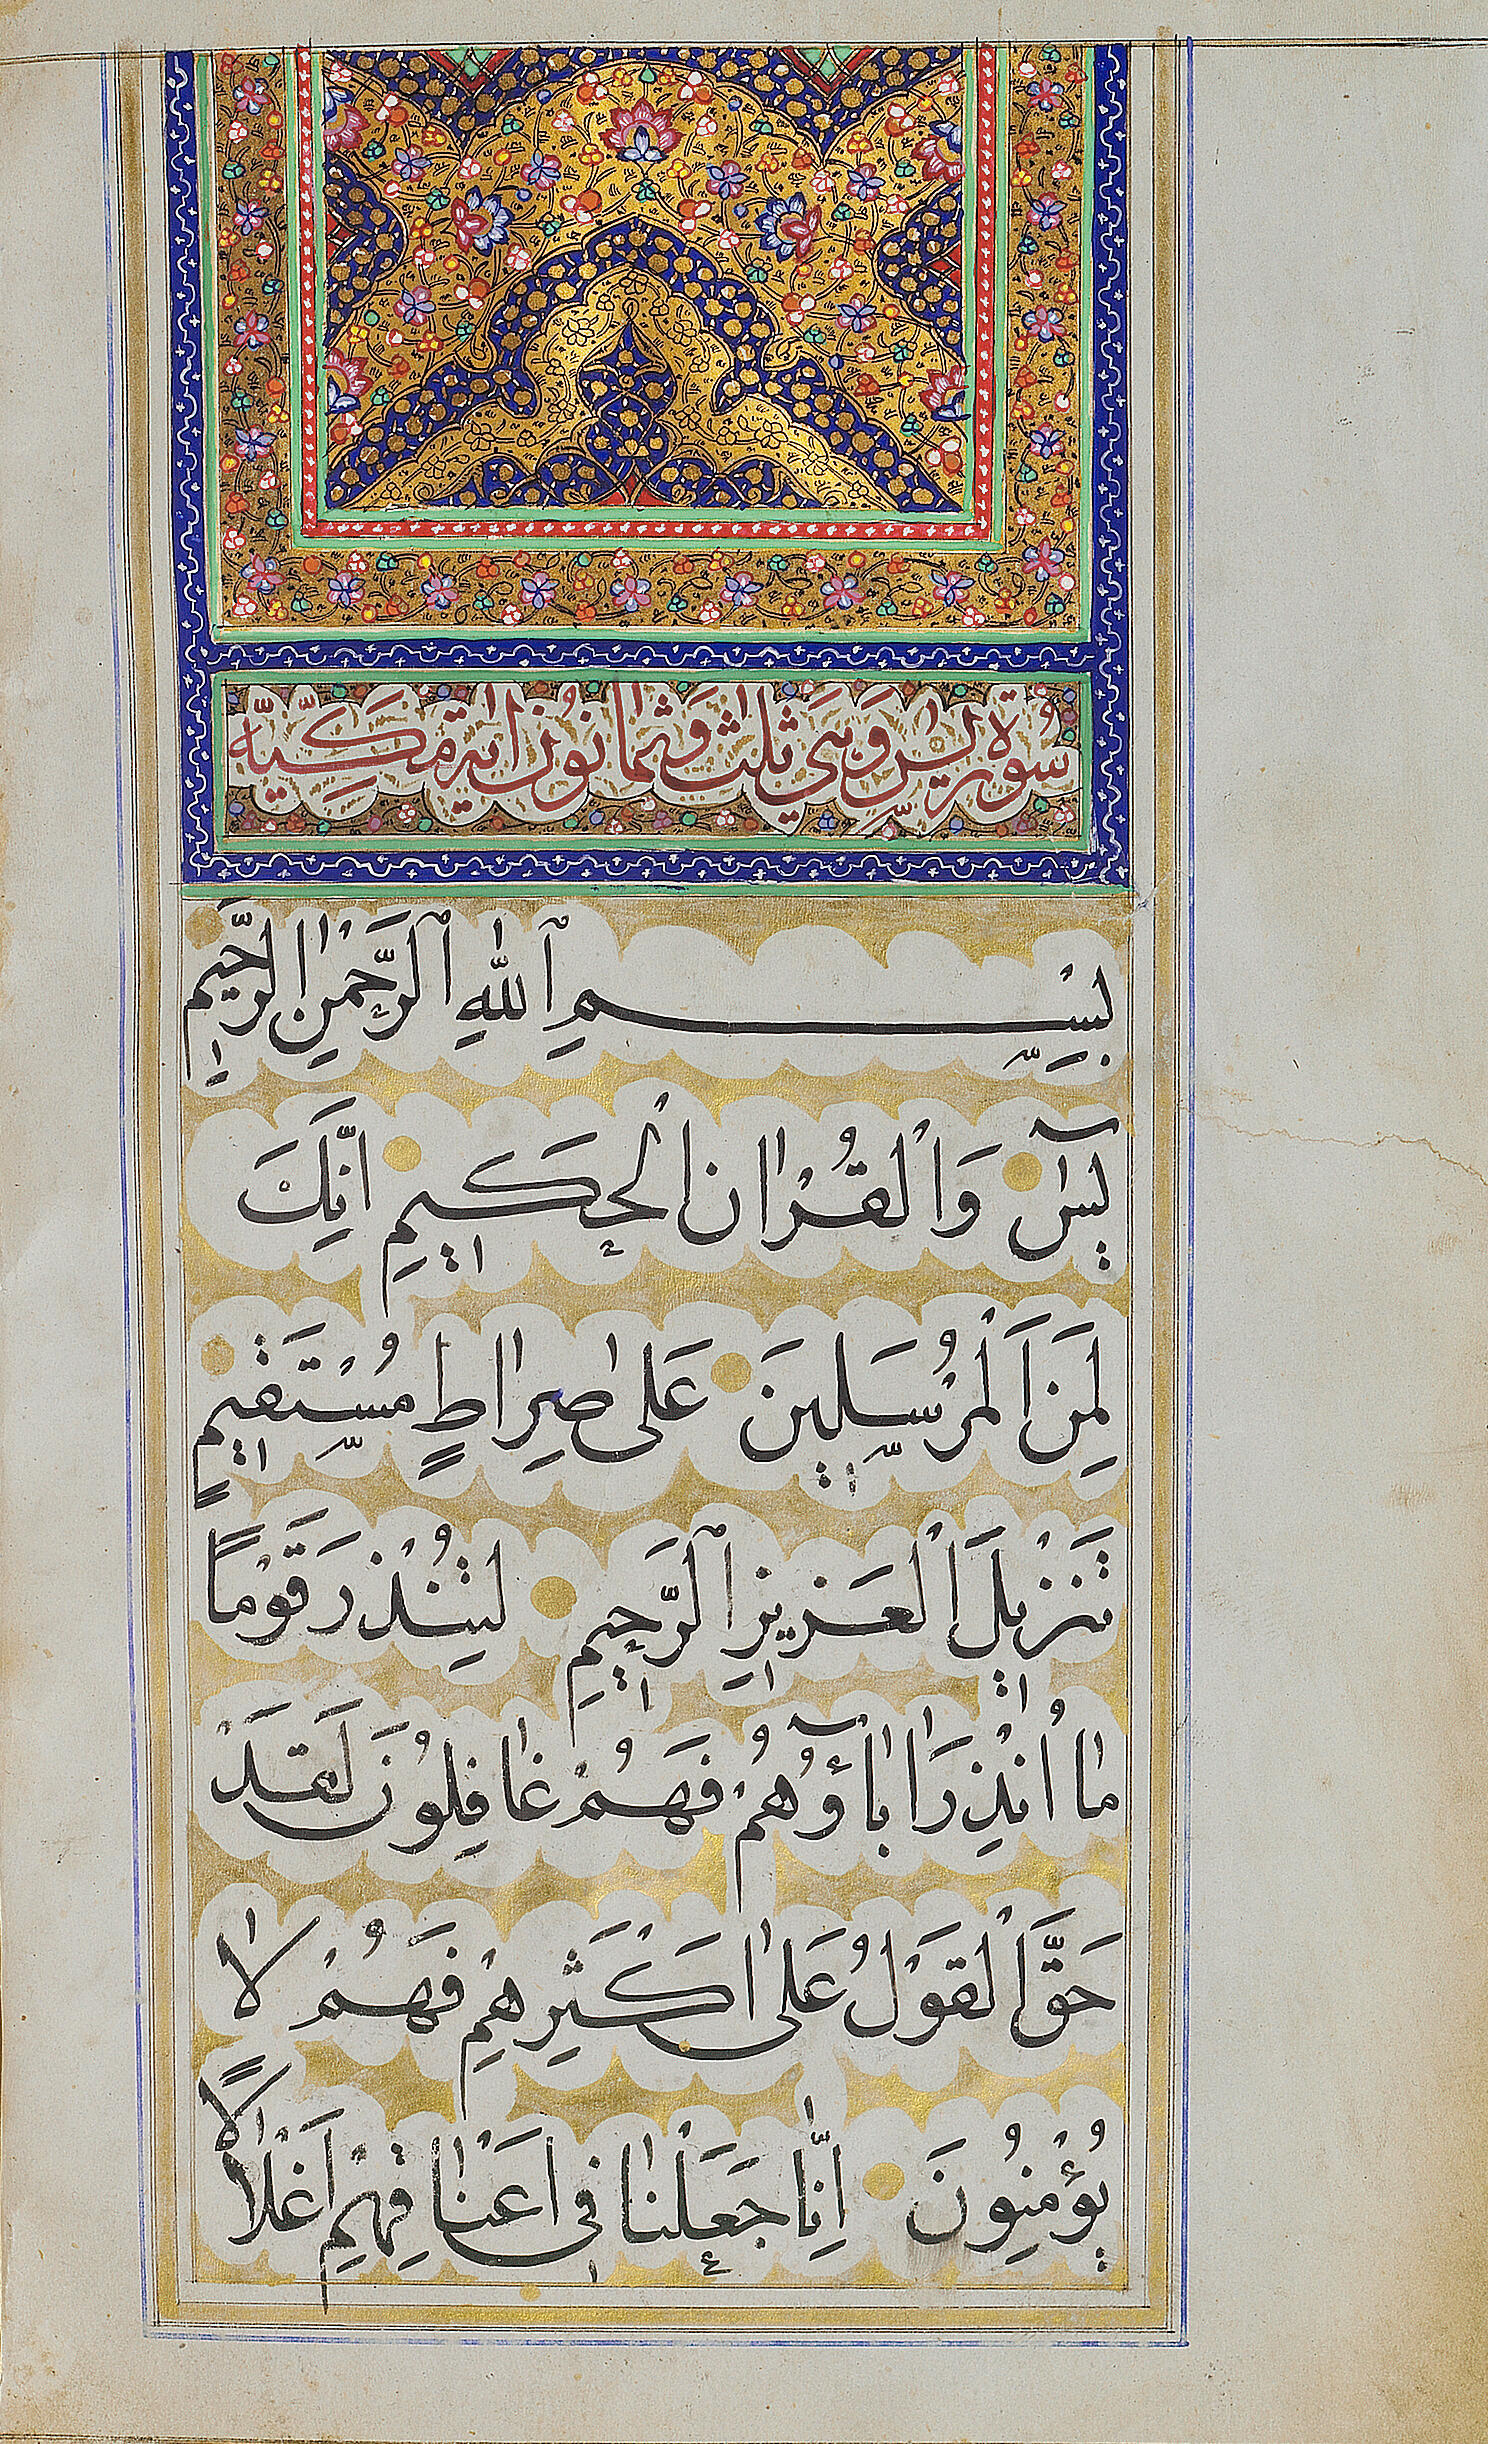 سُورَة يٰس وَهِىَ ثلث وَثمانُون اٰية مَكِّيّه
بِسْمِ ٱللّٰهِ ٱلرَّحْمٰنِ الرَّحٖيمِ
يٰسٓ وَالْقُرْاٰنِ الْحَكٖيمِ اِنَّكَ
لَمِنَ الْمُرْسَلٖينَ عَلٰى صِرٰاطٍ مُسْتَقٖيمٍ
تَنْزٖيلَ الْعَزٖيزِ ٱلرَّحٖيمِ لِتُنْذِرَ قَوْمًا
مٰا اُنْذِرَ اٰبٰآؤُهُمْ فَهُمْ غٰافِلُونَ لَقَدْ
حَقَّ الْقَوْلُ عَلٰى اَكْثَرِهِمْ فَهُمْ لٰا
يُؤْمِنُونَ اِنّٰا جَعَلْنٰا فٖى اَعْنٰاقِهِمْ اَغْلٰالًا